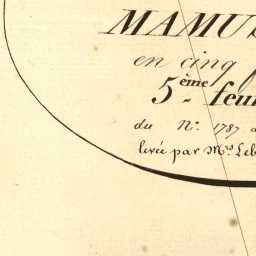 MAMUS
en cinq f
5ème feui
du N.º 1787 a
levée par M.rs Leb